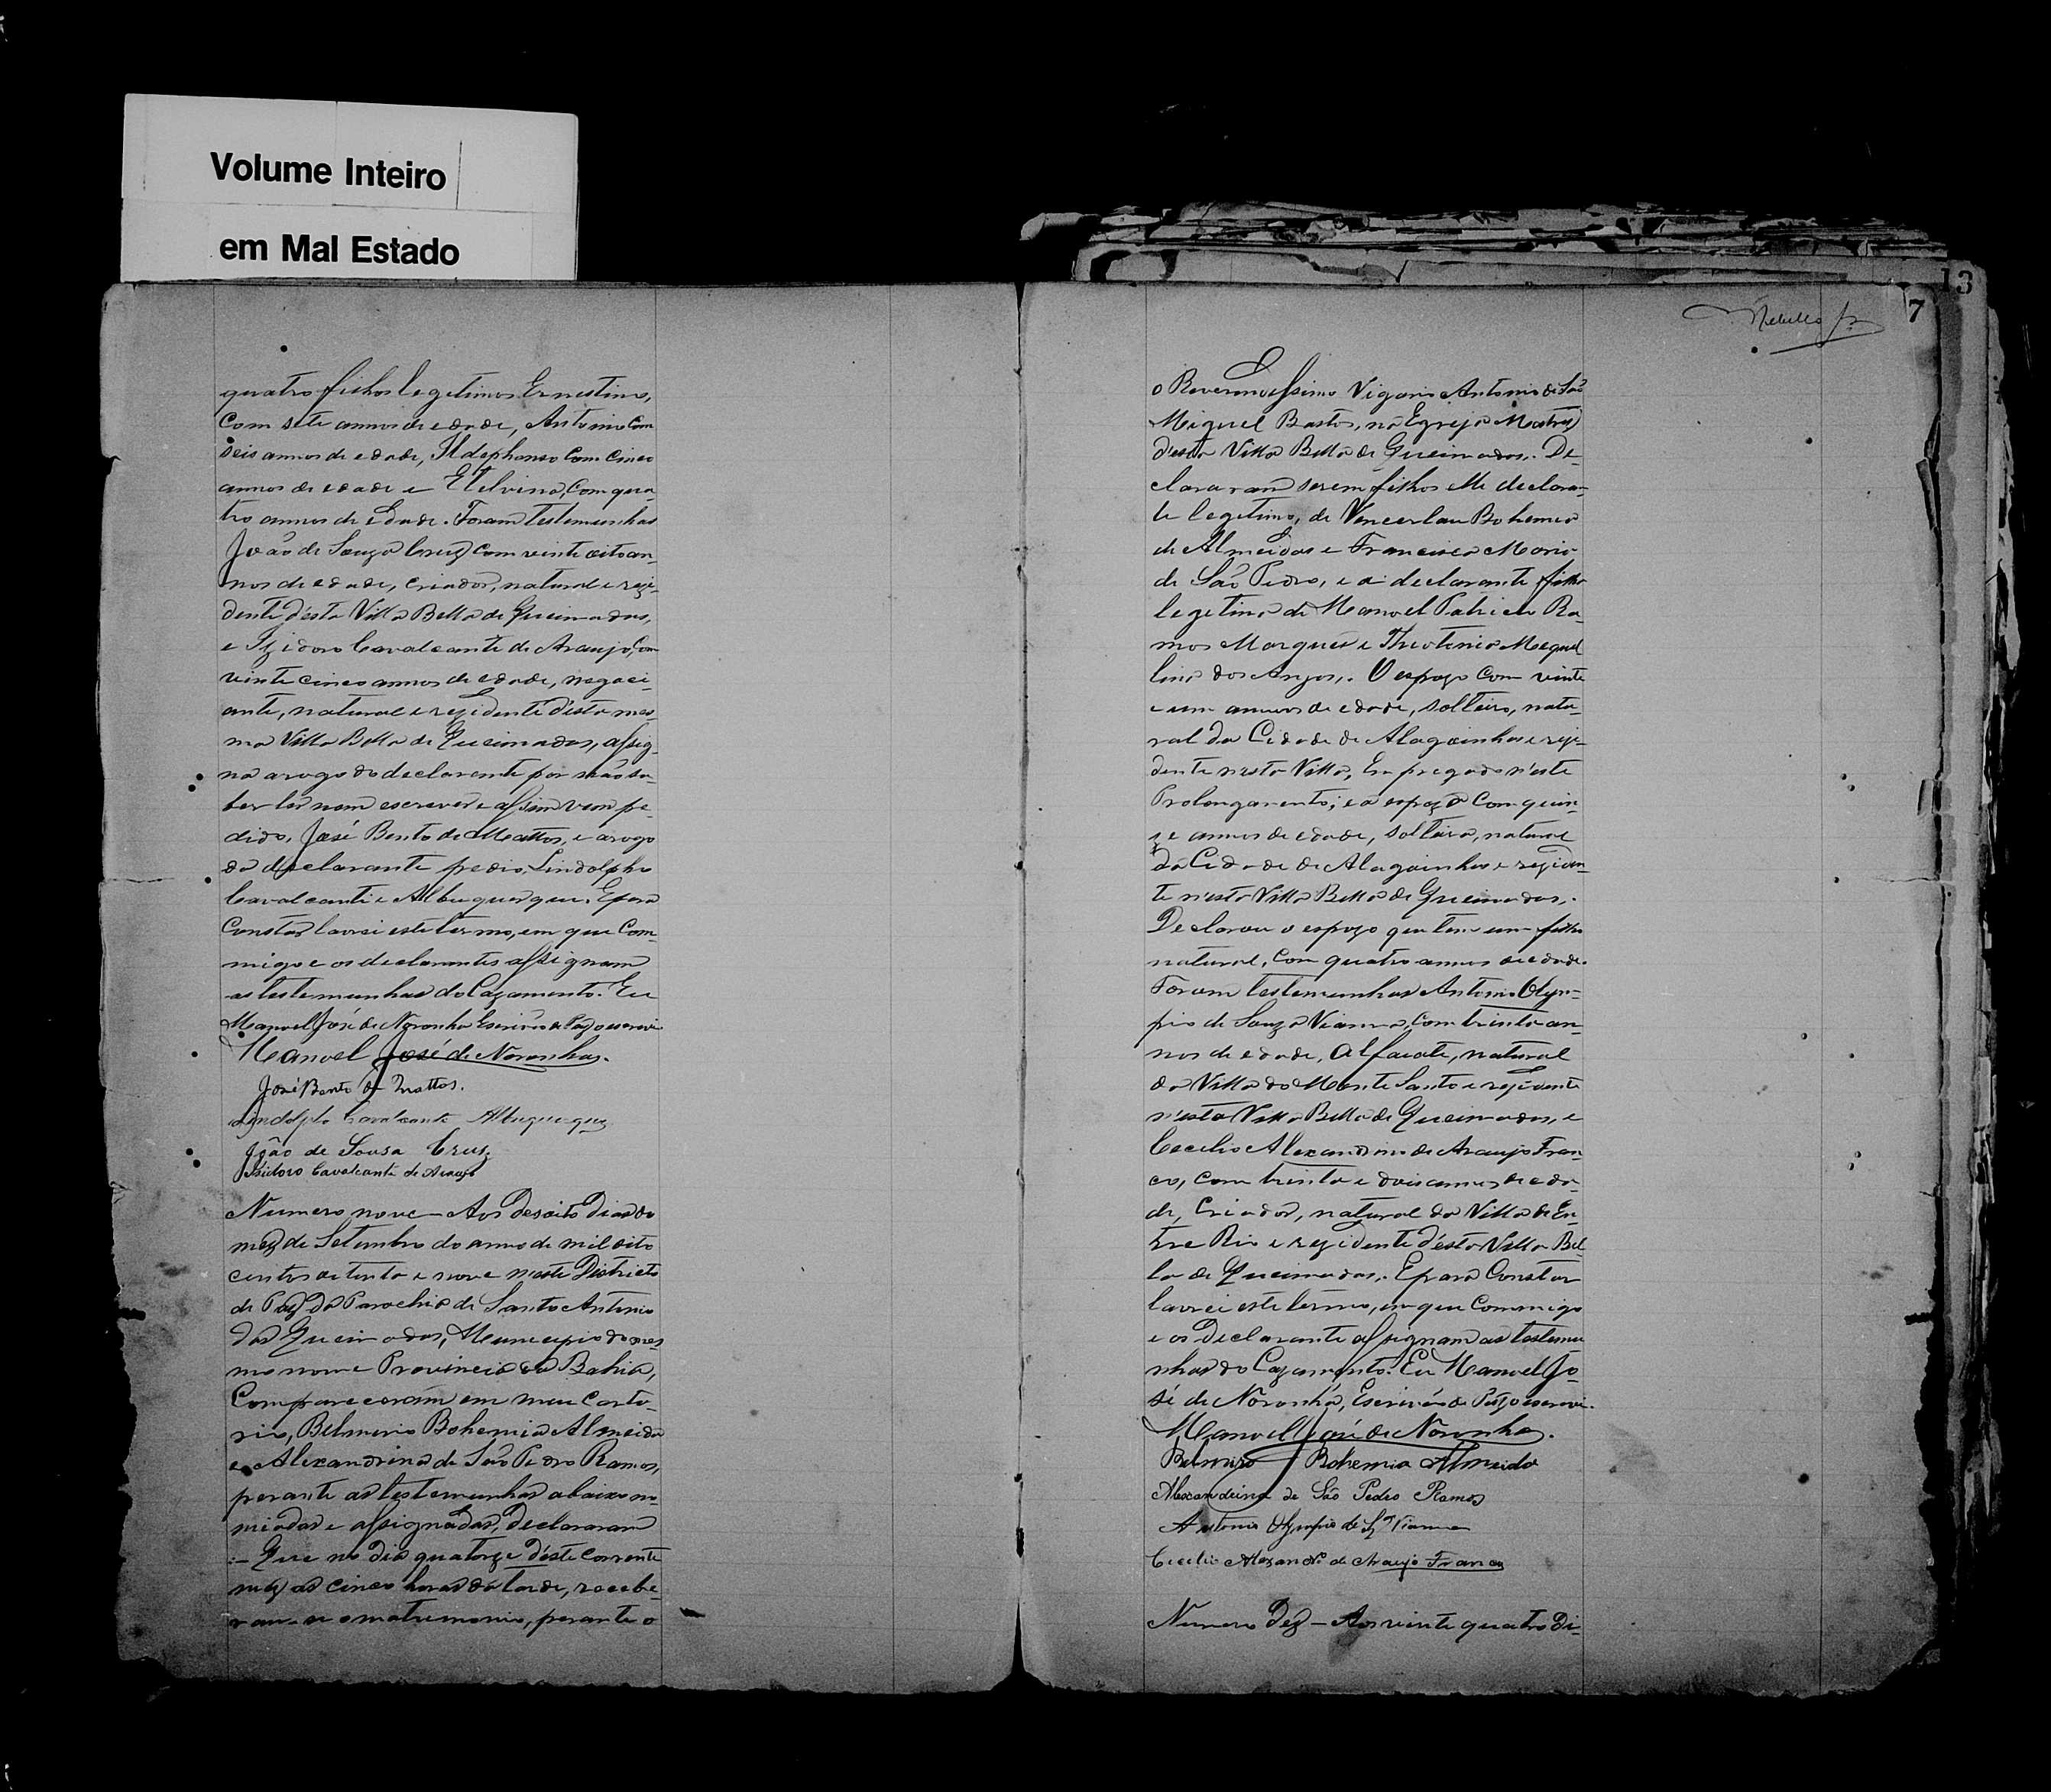 Volume Inteiro
em Mal Estado
13
7
Rebello Jr
quatro filhos legetimos Ernestino,
Com sete annos de edade, Antonio Com
seis annos de edade, Ildephonso Com cinco
annos de edade e Etelvina, Com qua-
tro annos de Edade. Foram testemunhas
João de Souza Cruz com vinte oito an-
nos de edade, criador, natural e rezi-
dente d'esta Villa Bella de Queimadas,
e Izidoro Cavalcante de Araujo, Com
vinte cinco annos de edade, negoci-
ante, natural e rezidente d'esta mes-
ma Villa Bella de Queimadas, assig-
na arogo do declarante por não sa-
ber ler nem escrever e assim vem pe-
dido, José Bento de Mattos, e arogo
da declarante pedio, Lindolpho
Cavalcante e Albuquerque. E para
Constar lavrei este termo, em que Com-
migo e os declarantes assignam
as testemunhas do Cazamento. Eu
Manoel José de Noronha Escrivão de Paz o escrevi
Manoel José de Noronha.
José Bento de Mattos.
Lindolpho Cavalcante Albuquerque
João de Sousa Cruz
Isidoro Cavalcante de Araujo
Numero nove — Aos Desoito Dias do
mez de Setembro do anno de mil oito
centos oitenta e nove neste Districto
de Paz da Parochia de Santo Antonio
das Queimadas, Municipio do mes-
mo nome Provincia da Bahia,
Compareceram em meu Carto-
rio, Belmiro Bohemia Almeida
e Alexandrina de São Pedro Ramos,
perante as testemunhas abaixo no-
miadas e assignadas, declararam
:— Que no dia quatorze d'este corrente
mez as cinco horas da tarde, recebe-
ram-se o matrimonio, perante o
o Reverendissimo Vigario Antonio de São
Miguel Bastos, na Egreja Matriz
desta Villa Bella de Queimadas,. De-
claravam serem filhos elle declaran-
te legetimo, de Venceslau Bohemia
de Almeida e Francisca Maria
de São Pedro, e a declarante filha
legetima de Manoel Patricio Ra-
mos Marques e Theotonia Meque
lina dos Anjos,. O espozo Com vinte
e um annos de edade, solteiro, natu-
ral da Cidade de Alagoinhas e rezi-
dente nesta Villa, Empregado n'este
Prolongamento; e a espoza Com quin-
ze annos de edade, solteira, natural
da Cidade de Alagoinhas e reziden-
te n'esta Villa Bella de Queimadas,.
Declarou o espozo que tem um filho
natural, Com quatro annos de edade.
Foram testemunhas Antonio Olym-
pio de Souza Vianna, Com trinta an-
nos de edade, Alfaiate, natural
da Villa do Monte Santo e rezidente
n'esta Villa Bella de Queimadas, e
Cecilio Alexandrino de Araujo Fran-
co, Com trinta e dois annos de eda-
de, Criador, natural da Villa de En-
tre Rio e rezidente d'esta Villa Bel-
la de Queimadas,. E para Constar
lavrei este termo, em que Commigo
e os Declarante assignam as testemu
nhas do Cazamento. Eu Manoel Jo-
sé de Noronha, Escrivão de Paz o escrevi.
Manoel José de Noronha.
Belmiro Bohemia Almeida
Alexandrina de São Pedro Ramos
Antonio Olympio de Sza Vianna
Cecilio Alexandro. de Araujo Franco
Numero Dez — Aos vinte quatro Di-